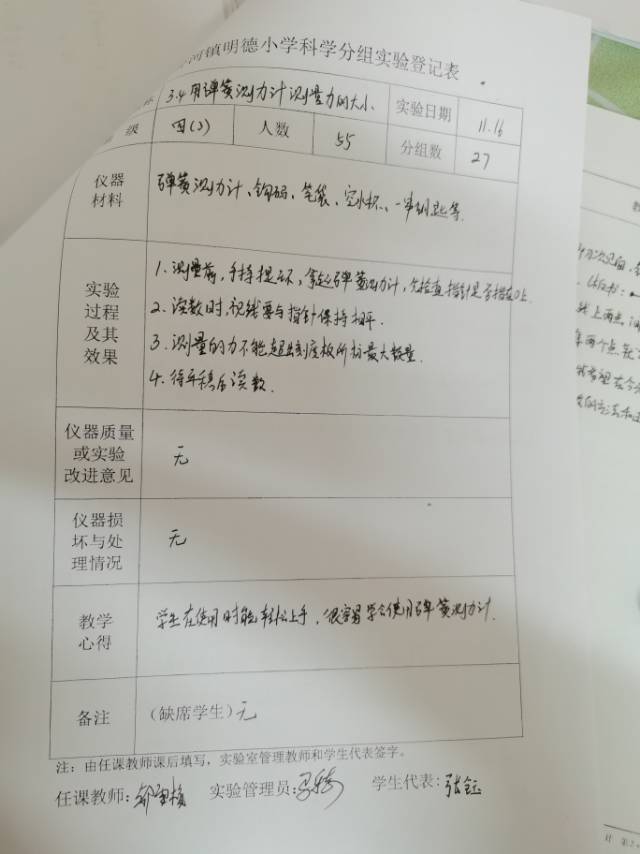 镇明德小学科学分组实验登记表
3.4用弹簧测力计测量力的大小
实验日期
11.16
级
四(3)
人数
55
分组数
27
仪器
材料
弹簧测力计、钩码、笔袋、空水杯、一串钥匙等.
实验
过程
及其
效果
1.测量前,手持提环,拿起弹簧测力计,先检查指针是否指在0上.
2.读数时,视线要与指针保持相平.
3.测量的力不能超出刻度板所标最大数量.
4.待平稳后读数.
仪器质量
或实验
改进意见
无
仪器损
坏与处
理情况
无
教学
心得
学生在使用时能轻松上手,很容易学会使用弹簧测力计.
备注
(缺席学生)无
注:由任课教师课后填写,实验室管理教师和学生代表签字。
任课教师:
实验管理员:
学生代表:张钰